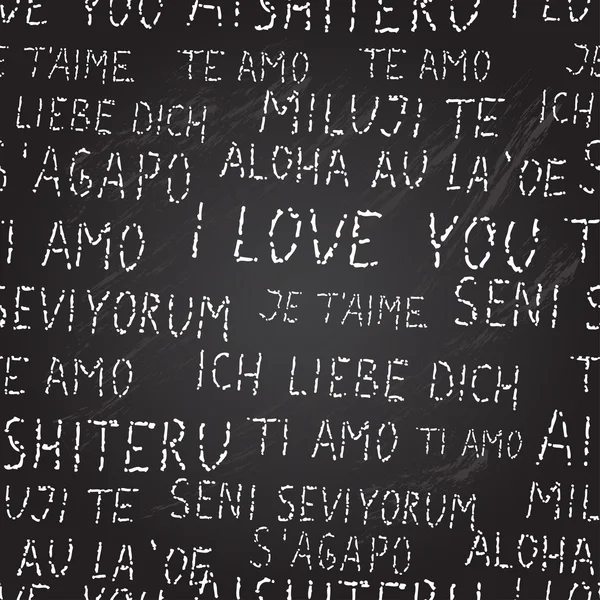 VE YOU AISHITERU I LO
E T'AIME TE AMO TE AMO JE
LIEBE DICH MILUJI TE ICH
S'AGAPO ALOHA AU LA`OE S
I AMO I LOVE YOU T
SEVIYORUM JE T'AIME SENI S
E AMO ICH LIEBE DICH T
SHITERU TI AMO TI AMO AI
UJI TE SENI SEVIYORUM MIL
AU LA`OE S'AGAPO ALOHA
VE YOU AISHITERU I LO